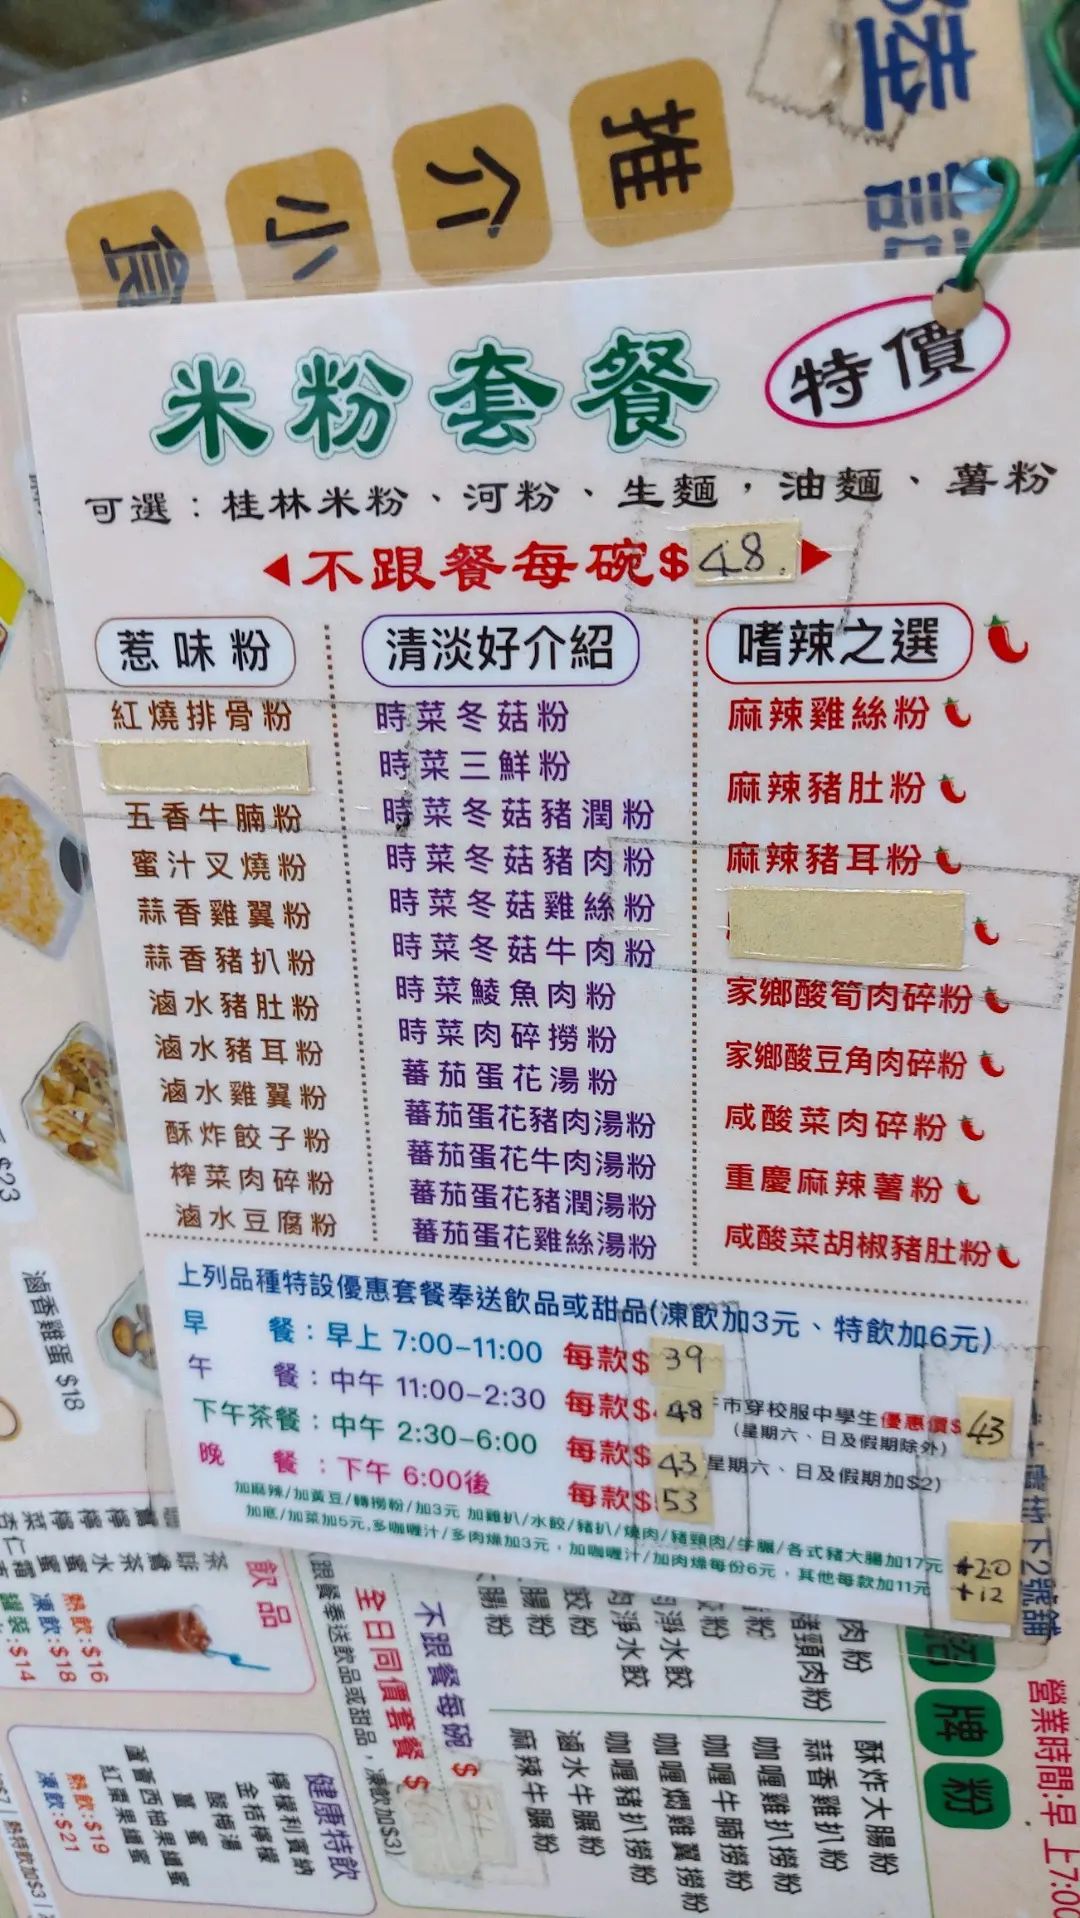 陸記
推介小食
米粉套餐
特價
可選：桂林米粉、河粉、生麵，油麵、薯粉
不跟餐每碗$48
惹味粉
紅燒排骨粉
五香牛腩粉
蜜汁叉燒粉
蒜香雞翼粉
蒜香豬扒粉
滷水豬肚粉
滷水豬耳粉
滷水雞翼粉
酥炸餃子粉
榨菜肉碎粉
滷水豆腐粉
清淡好介紹
時菜冬菇粉
時菜三鮮粉
時菜冬菇豬潤粉
時菜冬菇豬肉粉
時菜冬菇雞絲粉
時菜冬菇牛肉粉
時菜鯪魚肉粉
時菜肉碎撈粉
蕃茄蛋花湯粉
蕃茄蛋花豬肉湯粉
蕃茄蛋花牛肉湯粉
蕃茄蛋花豬潤湯粉
蕃茄蛋花雞絲湯粉
嗜辣之選
麻辣雞絲粉
麻辣豬肚粉
麻辣豬耳粉
家鄉酸筍肉碎粉
家鄉酸豆角肉碎粉
咸酸菜肉碎粉
重慶麻辣薯粉
咸酸菜胡椒豬肚粉
上列品種特設優惠套餐奉送飲品或甜品(凍飲加3元、特飲加6元)
早　餐：早上 7:00-11:00 每款$39
午　餐：中午 11:00-2:30 每款$48 市穿校服中學生優惠價$43
(星期六、日及假期除外)
下午茶餐：中午 2:30-6:00 每款$43 星期六、日及假期加$2)
晚　餐：下午 6:00後 每款$53
加麻辣/加黃豆/轉撈粉/加3元 加雞扒/水餃/豬扒/燒肉/豬頸肉/牛腩/各式豬大腸加17元 +20
加底/加菜加5元,多咖喱汁/多肉燥加3元，加咖喱汁/加肉燥每份6元，其他每款加11元 +12
$23
滷香雞蛋 $18
飲品
熱飲:$16
凍飲:$18
罐裝:$14
健康特飲
檸檬利賓納
金桔檸檬
酸梅湯
薑蜜
蘆薈西柚果纖蜜
紅蘋果纖蜜
熱飲:$19
凍飲:$21
不跟餐每碗 $
全日同價套餐 $
跟餐奉送飲品或甜品，凍飲加$3)
牌粉
酥炸大腸粉
蒜香雞扒粉
咖喱雞扒撈粉
咖喱牛腩撈粉
咖喱燜雞翼撈粉
咖喱豬扒撈粉
滷水牛腸粉
麻辣牛腸粉
豬頸肉粉
淨水餃
地下2號舖
營業時間:早上7:00